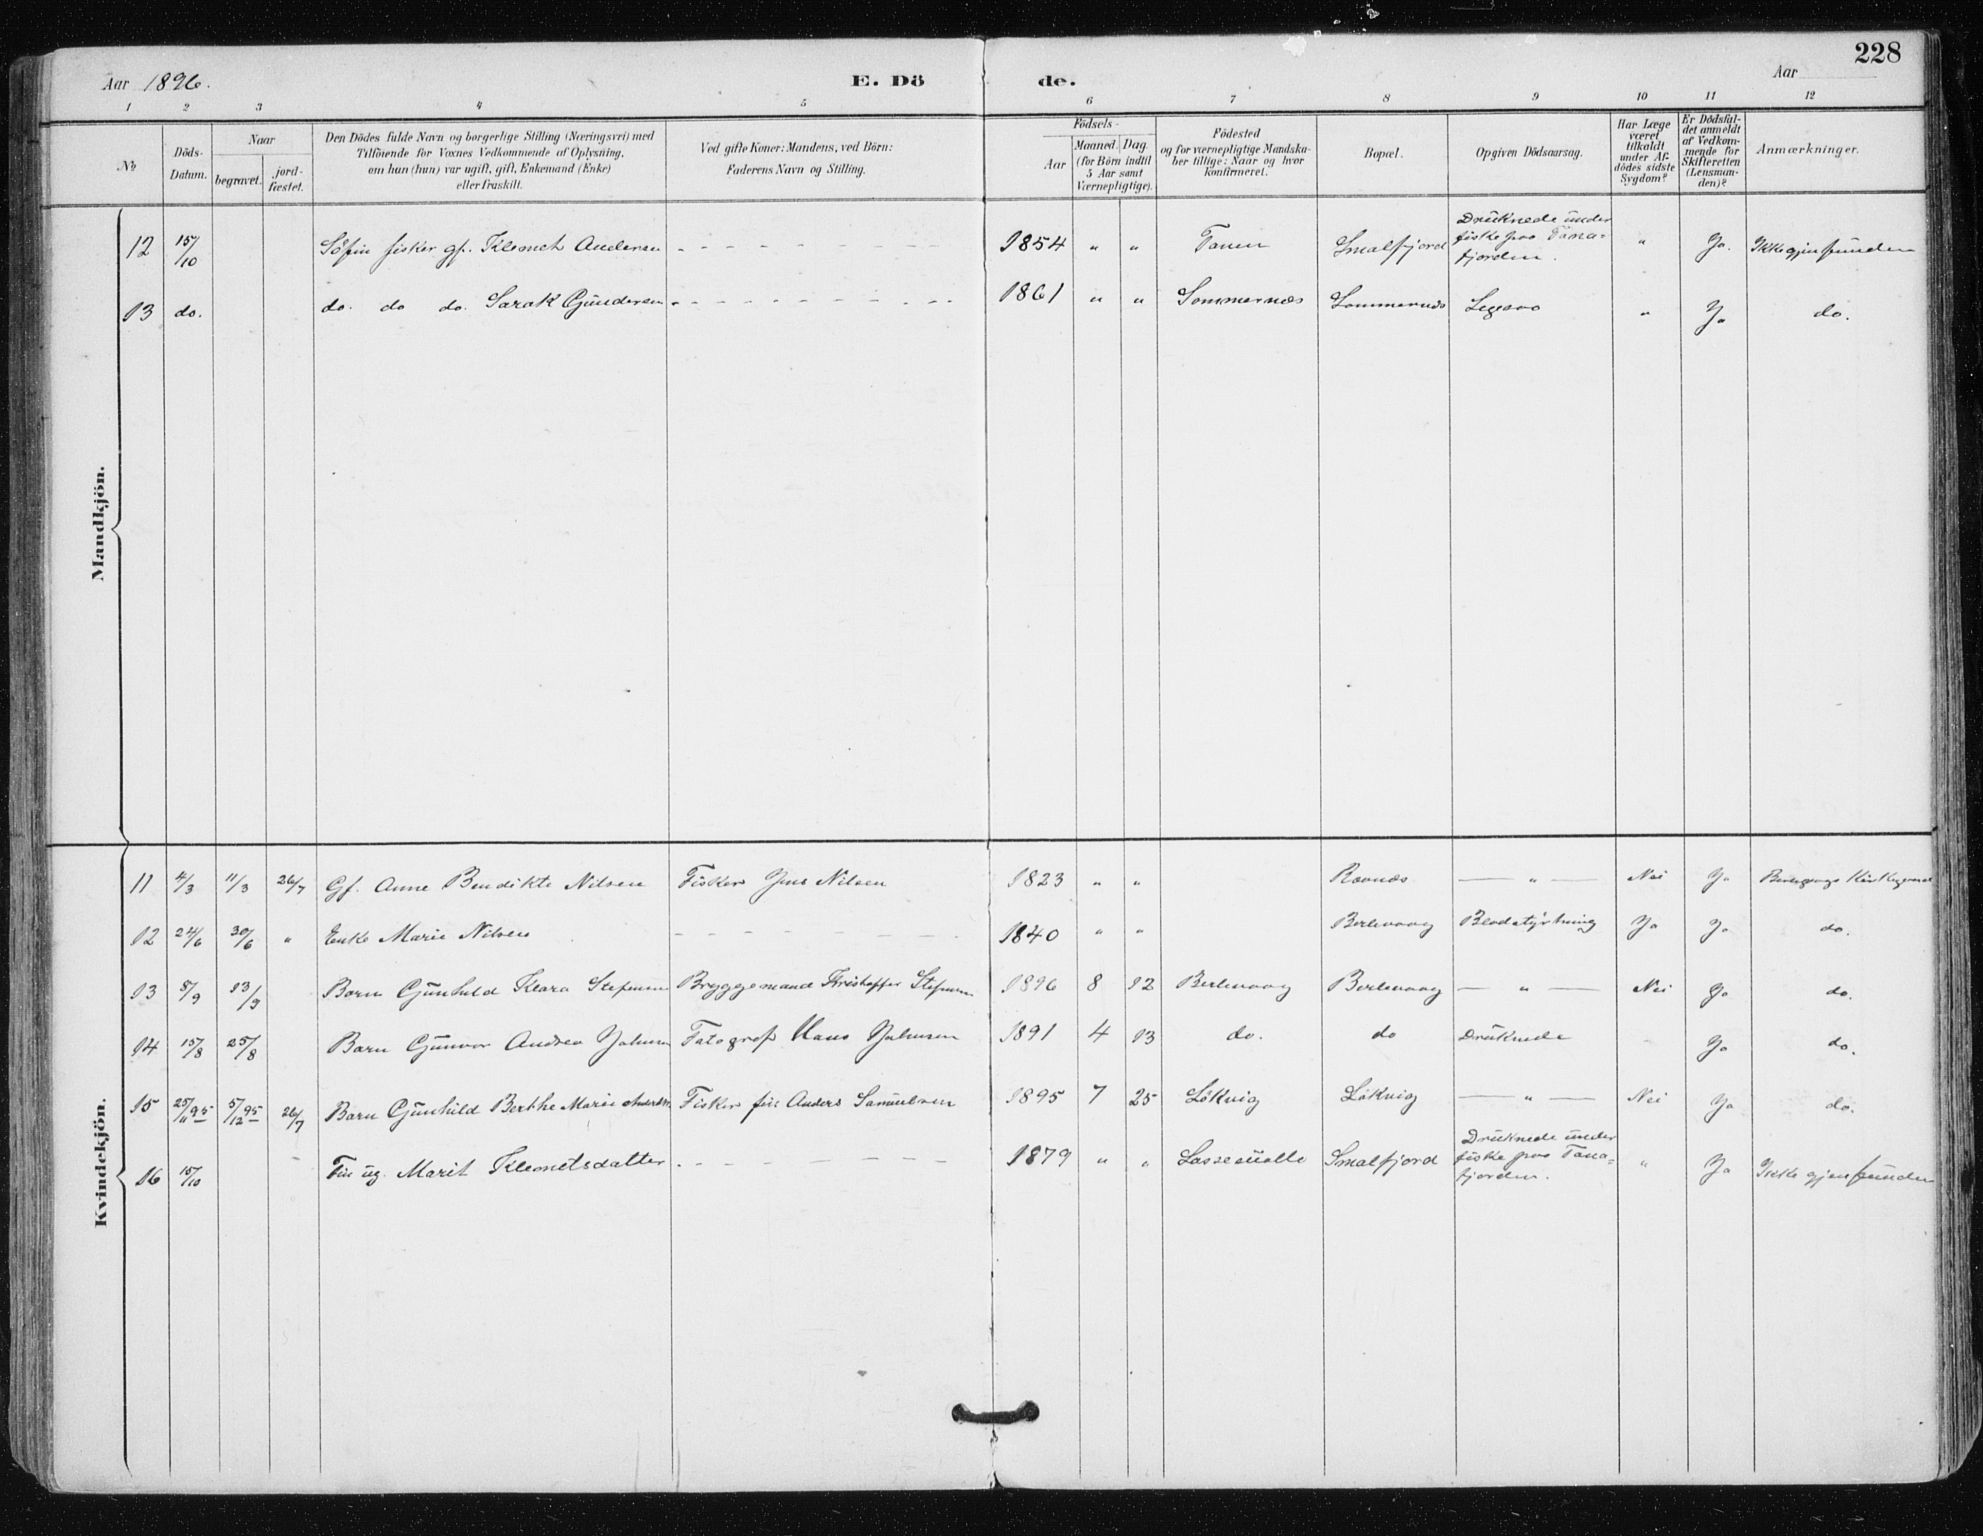 228
Aar 1896.
E. Dö de.
Aar
1 2 3 4 5 6 7 8 9 10 11 12
No
Döds-Datum.
Naar
begravet.
jord-fæstet.
Den Dödes fulde Navn og borgerlige Stilling (Næringsvei) med
Tilföiende for Voxnes Vedkommende af Oplysning,
om han (hun) var ugift, gift, Enkemand (Enke)
eller fraskilt.
Ved gifte Koner: Mandens, ved Börn:
Faderens Navn og Stilling.
Födsels-
Aar
Maaned. Dag.
(for Börn indtil
5 Aar samt
Værnepligtige).
Födested
og for værnepligtige Mandska-
ber tillige: Naar og hvor
konfirmeret.
Bopæl.
Opgiven Dödsaarsag.
Har Læge
været
tilkaldt
under Af-
dödes sidste
Sygdom?
Er Dödsfal-
det anmeldt
af Vedkom-
mende for
Skifteretten
(Lensman-
den)?
Anmærkninger.
Mandkjön.
12 15/10 Söfin fisker gf. Klemet Andersen - - - 1854 " " Tanen Smalfjord Druknede under fiske paa Tana-fjorden. " Ja. Ikke gjenfunden
13 do. do. do do. Sarak Gundersen - - - 1861 " " Sommernæs Sommernæs Ligesaa " Ja do.
Kvindekjön.
11 4/3 11/3 26/7 Gf. Anne Bendikte Nilsen Fisker Jens Nilsen 1823 " " Ravnæs — " — Nei Ja Berlevaags Kirkegaard
12 24/6 30/6 " Enke Marie Nilsen - - - 1840 " " Berlevaag Blodstyrtning Ja Ja do.
13 8/9 13/9 Barn Gunhild Klara Stefensen Bryggemand Kristoffer Stefensen 1896 8 12 Berlevaag Berlevaag — " — Nei Ja do.
14 15/8 25/8 Barn Gunvor Andrea Johnsen Fotograf Hans Johnsen 1891 4 13 do. do Druknede Ja do.
15 25/11 95 5/12 95 26/7 Barn Gunhild Berthe Marie Andersen Fisker fin Anders Samuelsen 1895 7 25 Lökvig Lökvig — " — Nei Ja do.
16 15/10 Fin ug. Marit Klemetsdatter - - - 1879 " " Smalfjord Druknede under fiske paa Tana-fjorden. " Ja Ikke gjenfunden